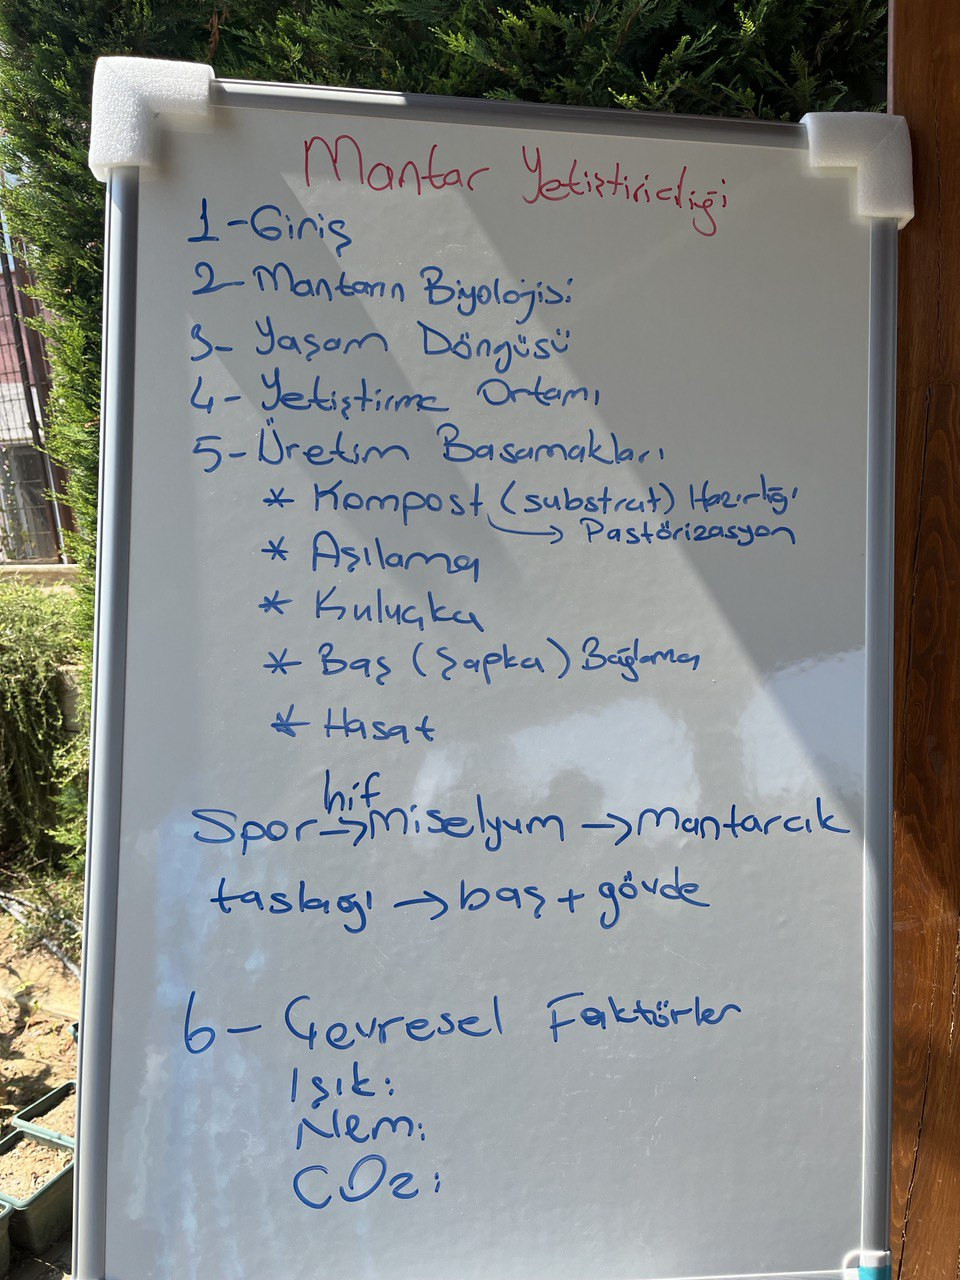 Mantar Yetiştiriciliği
1-Giriş
2-Mantarın Biyolojisi
3-Yaşam Döngüsü
4-Yetiştirme Ortamı
5-Üretim Basamakları
* Kompost (substrat) Hazırlığı
→ Pastörizasyon
* Aşılama
* Kuluçka
* Baş (Şapka) Bağlama
* Hasat
hif
Spor→Miselyum →Mantarcık
taslağı → baş + gövde
6- Çevresel Faktörler
Işık:
Nem:
CO2: